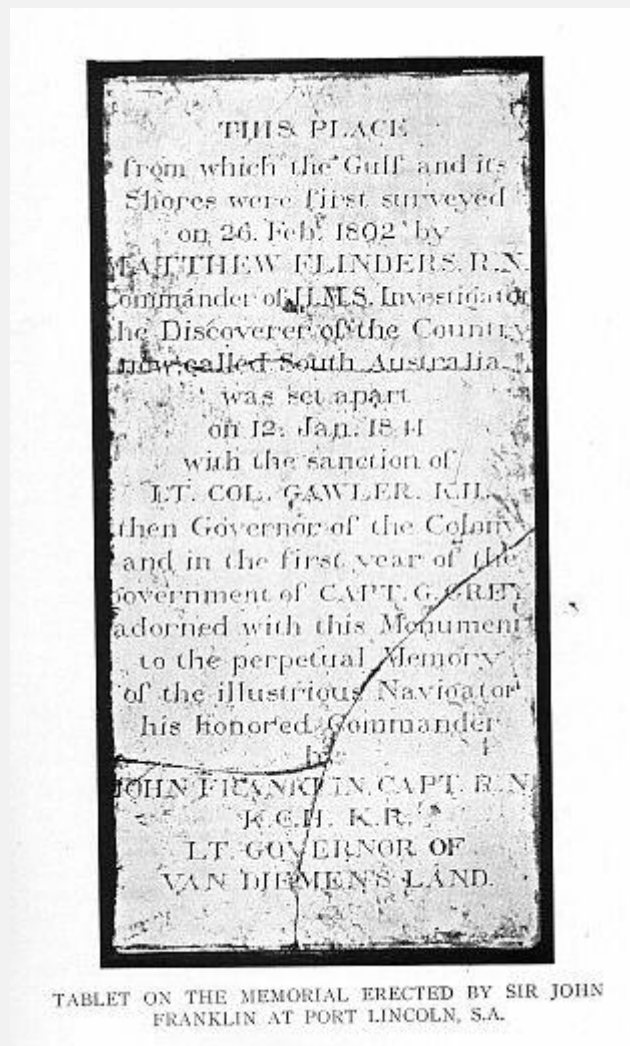 THIS PLACE
from which the Gulf and its
Shores were first surveyed
on 26. Feb. 1802 by
MATTHEW FLINDERS. R.N.
Commander of H.M.S. Investigator
the Discoverer of the Country
now called South Australia
was set apart
on 12. Jan. 1841
with the sanction of
LT. COL. GAWLER. K.H.
then Governor of the Colony
and in the first year of the
Government of CAPT. G. GREY
adorned with this Monument
to the perpetual Memory
of the illustrious Navigator
his honored Commander
by
JOHN FRANKLIN. CAPT. R.N.
K.C.H. K.R.
LT. GOVERNOR OF
VAN DIEMEN'S LAND.
TABLET ON THE MEMORIAL ERECTED BY SIR JOHN
FRANKLIN AT PORT LINCOLN, S.A.